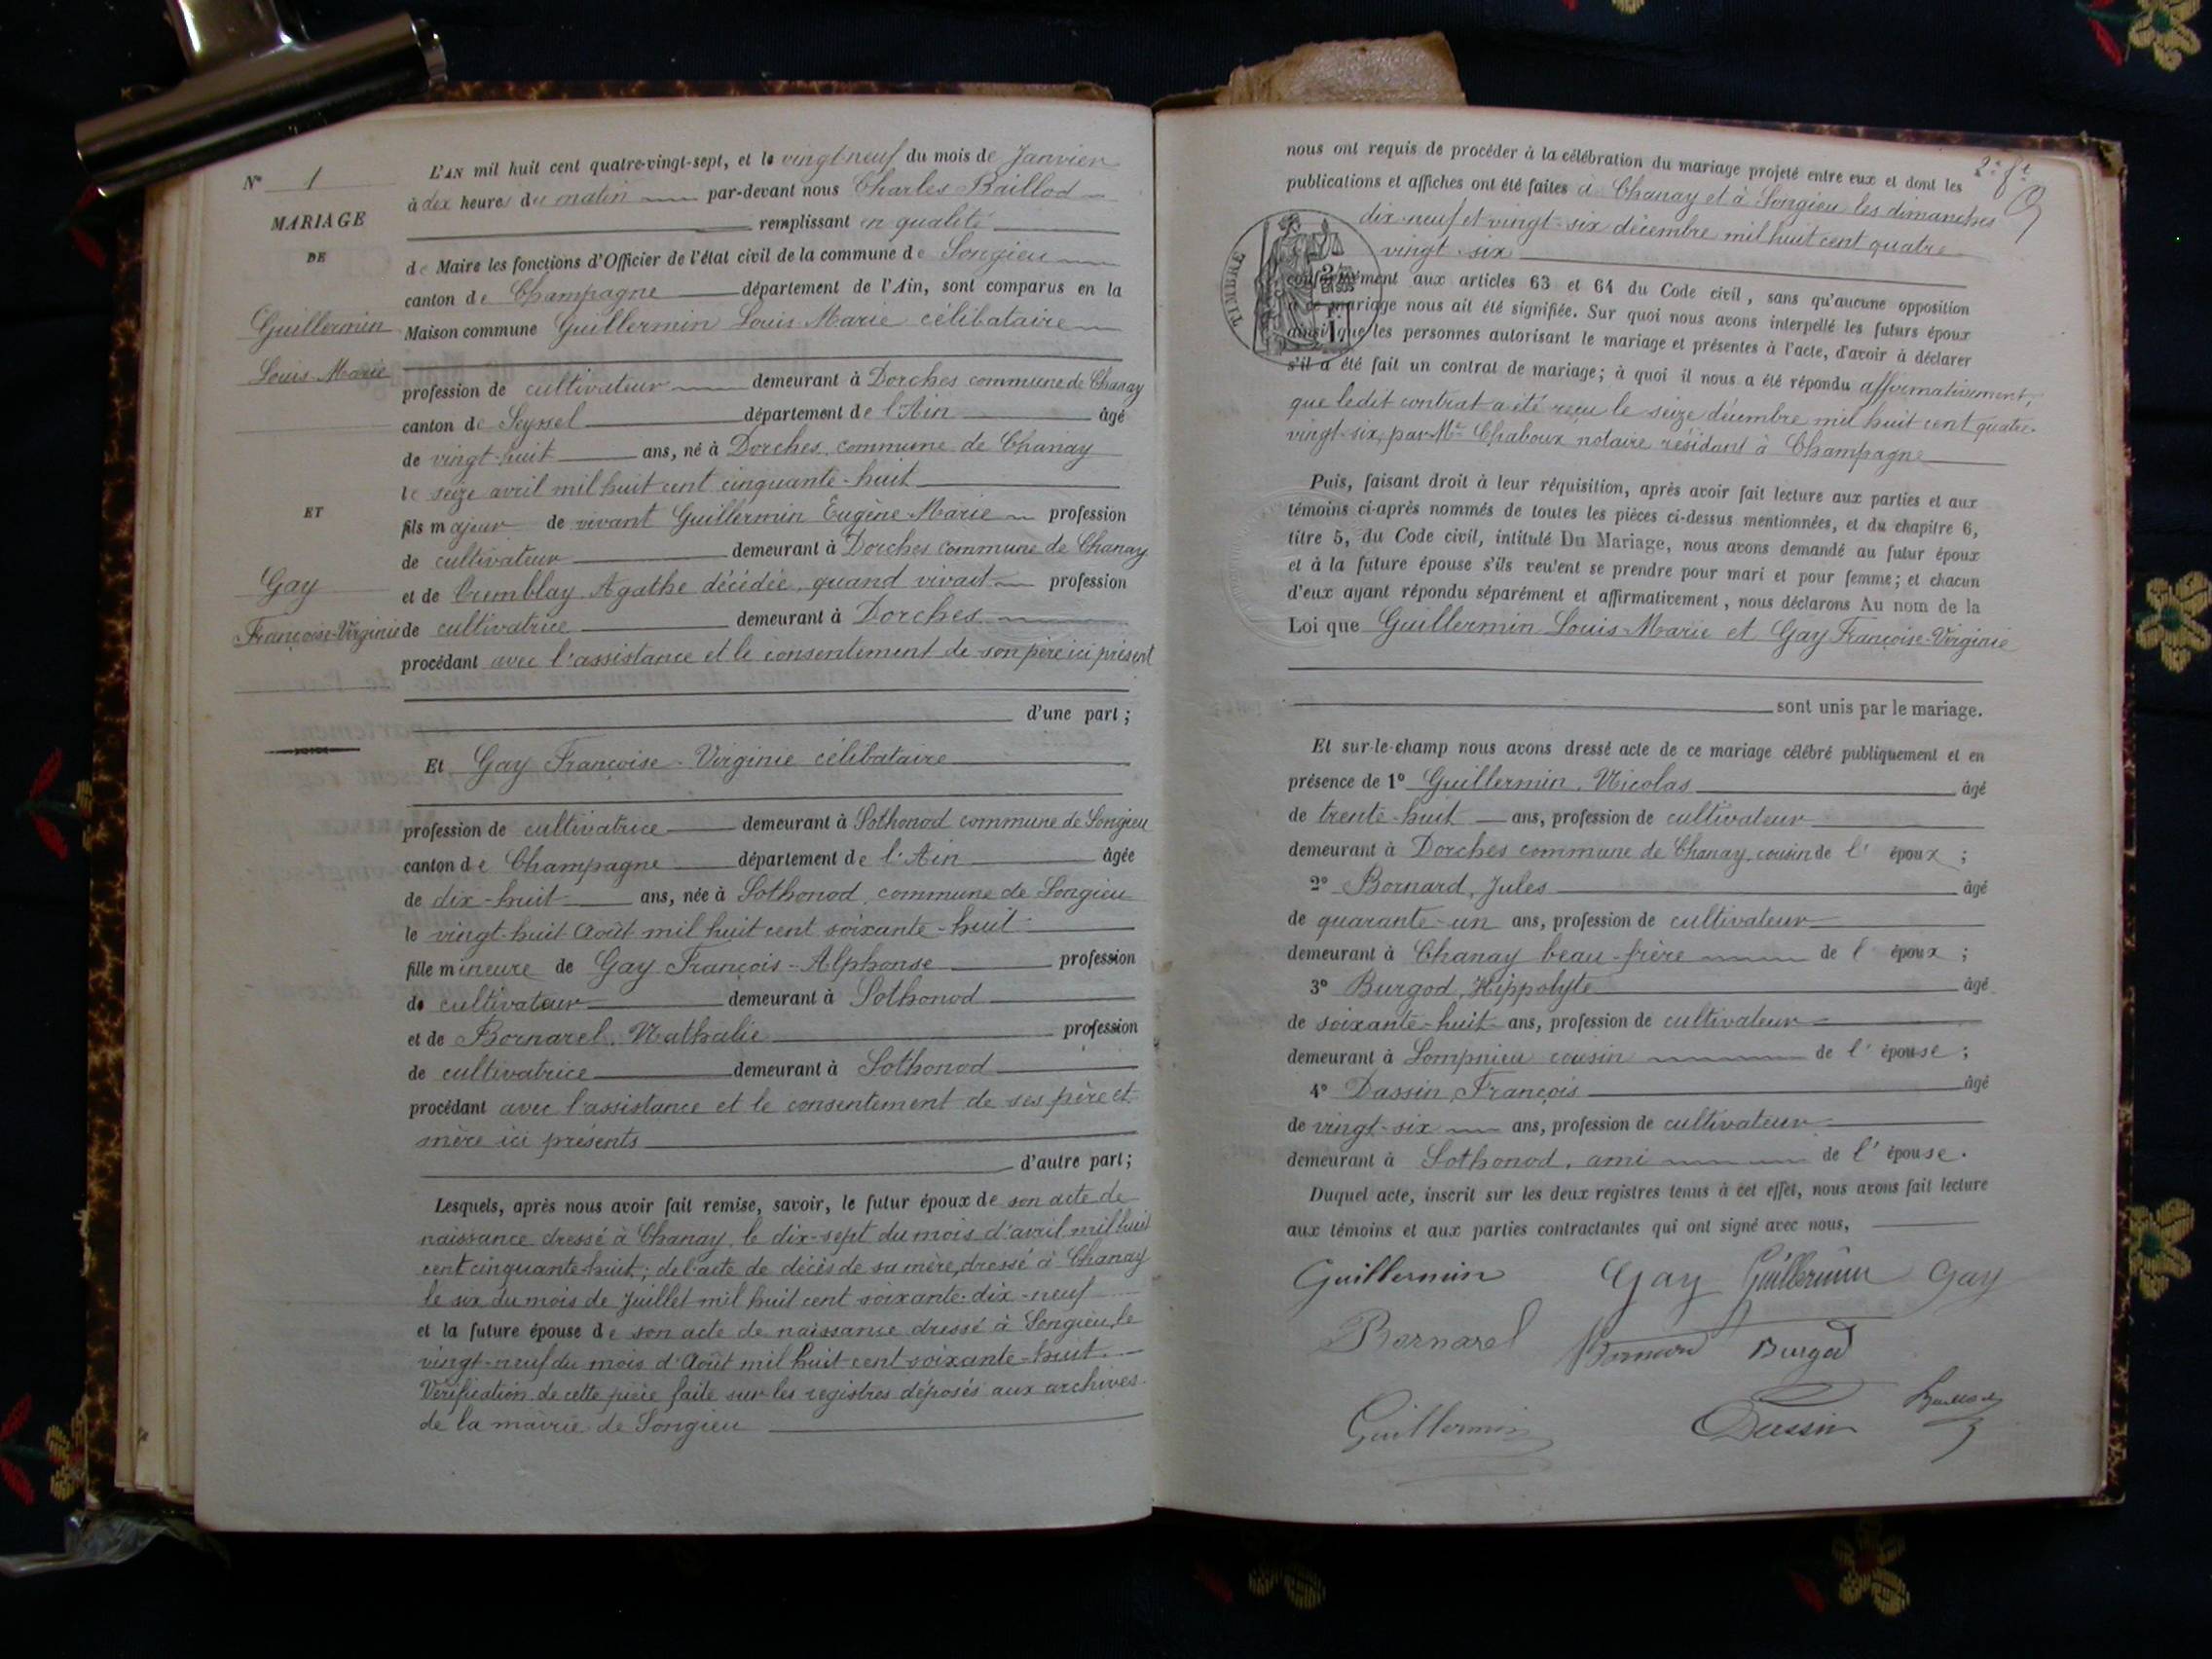 N° 1
MARIAGE
DE
Guillermin
Louis Marie
ET
Gay
Françoise-Virginie
L'AN mil huit cent quatre-vingt-sept, et le vingt-neuf du mois de Janvier
à dix heures du matin par-devant nous Charles Baillod
remplissant en qualité
de Maire les fonctions d'Officier de l'état civil de la commune de Songieu
canton de Champagne département de l'Ain, sont comparus en la
Maison commune Guillermin Louis Marie célibataire
profession de cultivateur demeurant à Dorches commune de Chanay
canton de Seyssel département de l'Ain âgé
de vingt-huit ans, né à Dorches, commune de Chanay
le seize avril mil huit cent cinquante-huit
fils majeur de vivant Guillermin Eugène-Marie profession
de cultivateur demeurant à Dorches commune de Chanay
et de Tremblay Agathe décédée, quand vivait profession
de cultivatrice demeurant à Dorches
procédant avec l'assistance et le consentement de son père ici présent
d'une part;
Et Gay Françoise-Virginie célibataire
profession de cultivatrice demeurant à Sothonod commune de Songieu
canton de Champagne département de l'Ain âgée
de dix-huit ans, née à Sothonod, commune de Songieu
le vingt-huit Août mil huit cent soixante-huit
fille mineure de Gay François-Alphonse profession
de cultivateur demeurant à Sothonod
et de Bornarel, Nathalie profession
de cultivatrice demeurant à Sothonod
procédant avec l'assistance et le consentement de ses père et
mère ici présents
d'autre part;
Lesquels, après nous avoir fait remise, savoir, le futur époux de son acte de
naissance dressé à Chanay, le dix-sept du mois d'avril mil huit
cent cinquante-huit; de l'acte de décès de sa mère, dressé à Chanay
le six du mois de Juillet mil huit cent soixante-dix-neuf
et la future épouse de son acte de naissance dressé à Songieu, le
vingt-neuf du mois d'Août mil huit cent soixante-huit.
Vérification de cette pièce faite sur les registres déposés aux archives
de la mairie de Songieu
2e ft
nous ont requis de procéder à la célébration du mariage projeté entre eux et dont les
publications et affiches ont été faites à Chanay et à Songieu les dimanches
dix-neuf et vingt-six décembre mil huit cent quatre
vingt-six
TIMBRE
conformément aux articles 63 et 64 du Code civil, sans qu'aucune opposition
à ce mariage nous ait été signifiée. Sur quoi nous avons interpellé les futurs époux
ainsi que les personnes autorisant le mariage et présentes à l'acte, d'avoir à déclarer
s'il a été fait un contrat de mariage; à quoi il nous a été répondu affirmativement,
que ledit contrat a été reçu le seize décembre mil huit cent quatre-
vingt-six, par Me Chaboux notaire résidant à Champagne
Puis, faisant droit à leur réquisition, après avoir fait lecture aux parties et aux
témoins ci-après nommés de toutes les pièces ci-dessus mentionnées, et du chapitre 6,
titre 5, du Code civil, intitulé Du Mariage, nous avons demandé au futur époux
et à la future épouse s'ils veulent se prendre pour mari et pour femme; et chacun
d'eux ayant répondu séparément et affirmativement, nous déclarons Au nom de la
Loi que Guillermin Louis-Marie et Gay Françoise-Virginie
sont unis par le mariage.
Et sur-le-champ nous avons dressé acte de ce mariage célébré publiquement et en
présence de 1° Guillermin, Nicolas âgé
de trente-huit ans, profession de cultivateur
demeurant à Dorches commune de Chanay, cousin de l'époux;
2° Bornard, Jules âgé
de quarante-un ans, profession de cultivateur
demeurant à Chanay beau-frère de l'époux;
3° Burgod, Hippolyte âgé
de soixante-huit ans, profession de cultivateur
demeurant à Lompnieu cousin de l'épouse;
4° Dassin, François âgé
de vingt-six ans, profession de cultivateur
demeurant à Sothonod, ami de l'épouse.
Duquel acte, inscrit sur les deux registres tenus à cet effet, nous avons fait lecture
aux témoins et aux parties contractantes qui ont signé avec nous.
Guillermin Gay Guillermin Gay
Bornarel Bornard Burgod
Guillermin Dussin Baillod